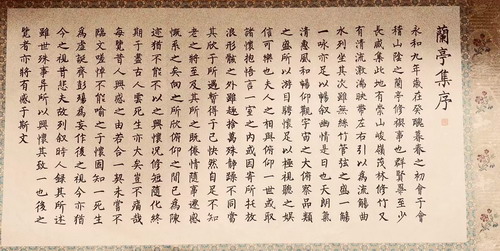 蘭亭集序
永和九年歲在癸丑暮春之初會于會
稽山陰之蘭亭修禊事也群賢畢至少
長咸集此地有崇山峻嶺茂林修竹又
有清流激湍映帶左右引以為流觴曲
水列坐其次雖無絲竹管弦之盛一觴
一詠亦足以暢敘幽情是日也天朗氣
清惠風和暢仰觀宇宙之大俯察品類
之盛所以遊目騁懷足以極視聽之娛
信可樂也夫人之相與俯仰一世或取
諸懷抱悟言一室之內或因寄所托放
浪形骸之外雖趣捨萬殊靜躁不同當
其欣于所遇暫得于己快然自足不知
老之將至及其所之既倦情隨事遷感
慨系之矣向之所欣俯仰之間已為陳
迹猶不能不以之興懷況修短隨化終
期于盡古人云死生亦大矣豈不痛哉
每覽昔人興感之由若合一契未嘗不
臨文嗟悼不能喻之于懷固知一死生
為虛誕齊彭殤為妄作後之視今亦猶
今之視昔悲夫故列敘時人錄其所述
雖世殊事異所以興懷其致一也後之
覽者亦將有感于斯文